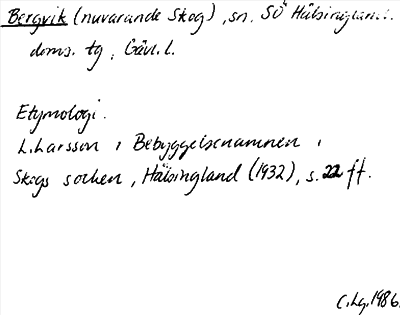 Bergvik (nuvarande Skog), sn. SÖ Hälsinglands
doms. tg, Gävl. l.
Etymologi.
L. Larsson, Bebyggelsenamnen i
Skogs socken, Hälsingland (1932), s. 22 ff.
C. Lg. 1986.